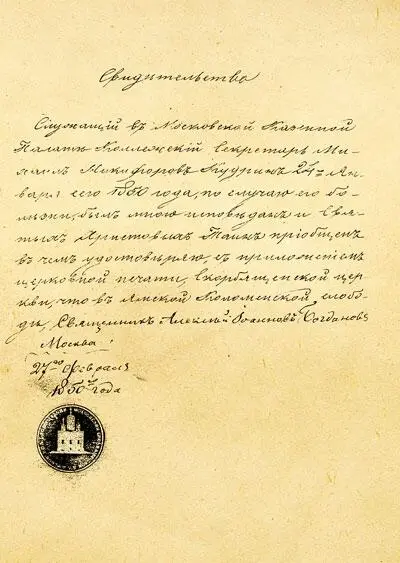 Свидетельство
Служащій въ Московской Казенной
Палатѣ Коллежскій Секретарь Ми-
хаилъ Никифоровъ Кудринъ 24го Ян-
варя сего 1850 года, по случаю его бо-
лѣзни, былъ мною исповѣданъ и Свя-
тыхъ Христовыхъ Таинъ пріобщенъ
въ чемъ удостовѣряю, съ приложеніемъ
церковной печати, Скорбященской цер-
кви, что въ Ямской Коломенской слобо-
дѣ, Священникъ Алексѣй Іоанновъ Богдановъ
Москва
27го Февраля
1850го года